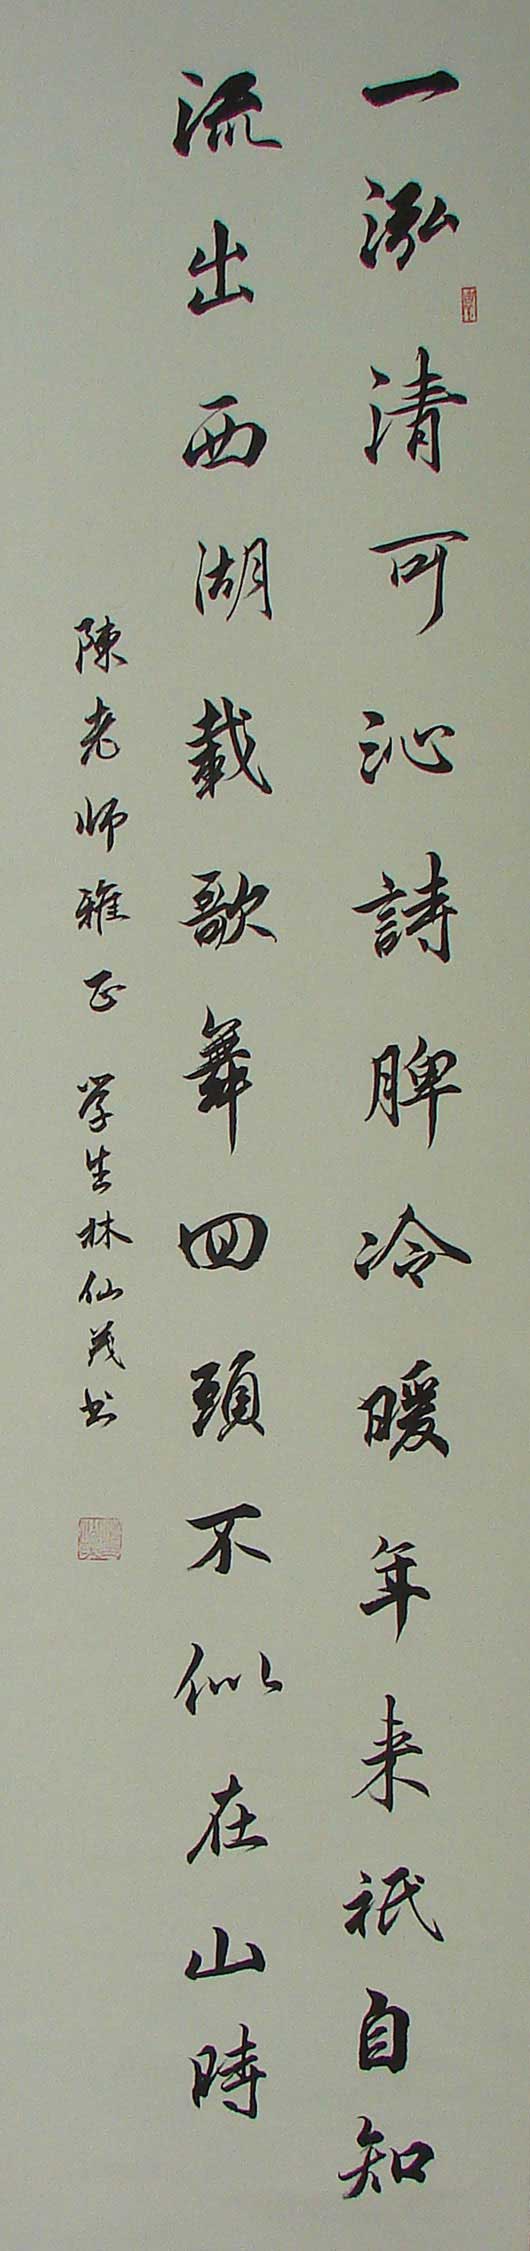 一泓清可沁詩脾冷暖年来祇自知
流出西湖載歌舞回頭不似在山時
陳老师雅正 学生林仙茂书